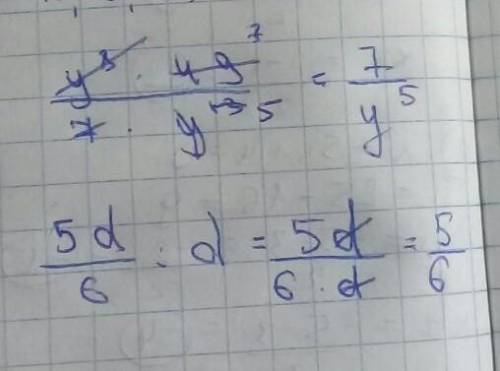 y⁸ · 49 ⁷ / 7 · y¹³ ⁵ = 7 / y⁵
5d / 6 : d = 5d / 6 · d = 5 / 6